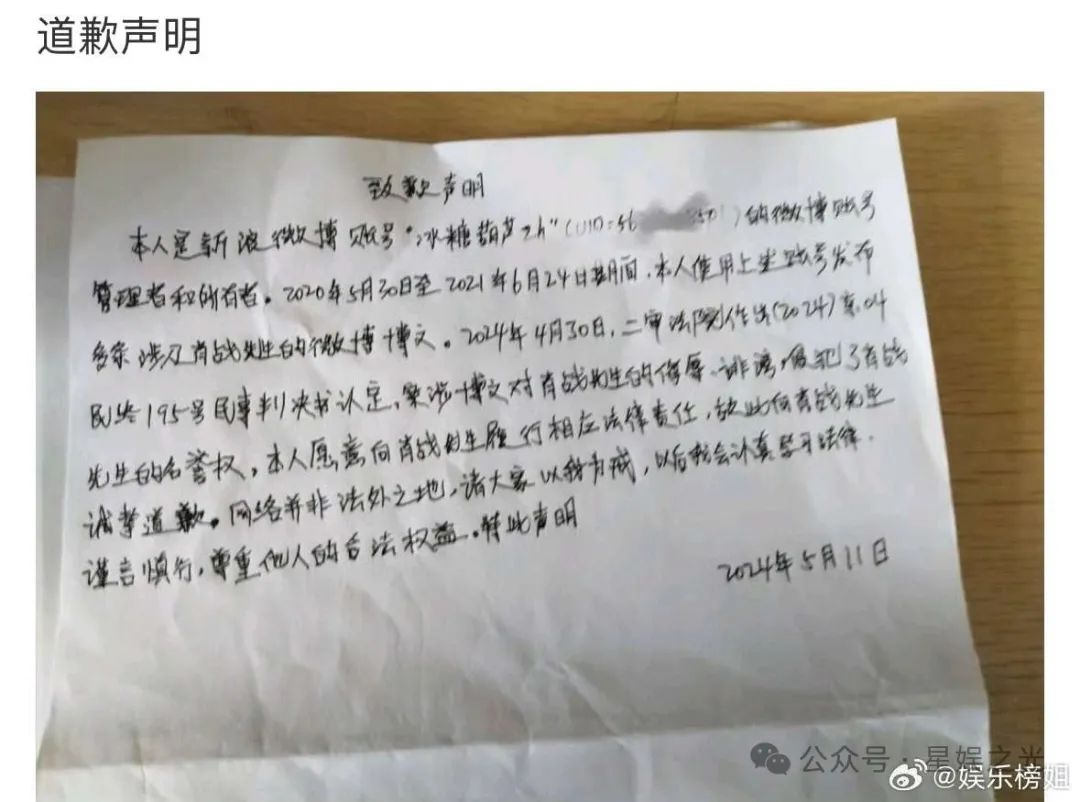 道歉声明
致歉声明
本人是新浪微博账号"冰糖葫芦zh"(UID:56 501)的微博账号
管理者和所有者。2020年5月30日至2021年6月24日期间,本人使用上述账号发布
多条涉及肖战先生的微博博文。2024年4月30日,二审法院作出(2024)京04
民终195号民事判决书认定,案涉博文对肖战先生的侮辱、诽谤,侵犯了肖战
先生的名誉权,本人愿意向肖战先生履行相应法律责任,故此向肖战先生
诚挚道歉。网络并非法外之地,请大家以我为戒,以后我会认真学习法律.
谨言慎行,尊重他人的合法权益。特此声明
2024年5月11日
公众号·星娱之光
@娱乐榜姐